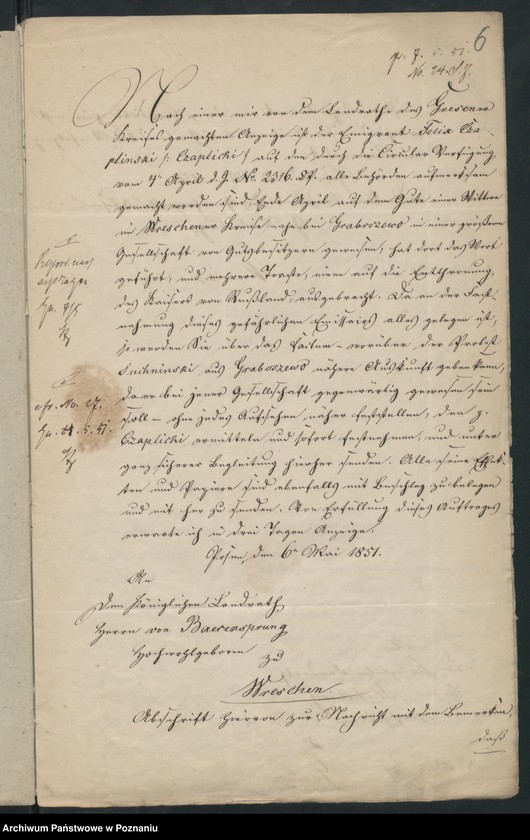 6
pr. 7. 5. 51.
No. 24. d. J.
Nach einer mir von dem Landrathe des Gnesener
Kreises gemachten Anzeige ist der Emigrant Felix Cza-
plinski /: Czaplicki :/ auf den durch die Circular Verfügung
vom 7t April d. J. No. 2316. P. alle Behörden aufmerksam
gemacht worden sind, Ende April auf dem Gute einer Wittwe
im Wreschener Kreise nahe bei Graboszewo in einer größeren
Gesellschaft von Gutsbesitzern gewesen, hat dort das Wort
geführt, und mehrere Toaste, einen auf die Entthronung
des Kaisers von Rußland, ausgebracht. Da an der Fest-
nehmung dieses gefährlichen Emissairs alles gelegen ist,
so werden Sie über das Factum – worüber der Probst
Suchninski aus Graboszewo nähere Auskunft geben kann,
da er bei jener Gesellschaft gegenwärtig gewesen sein
soll – ohne jedes Aufsehen, näher feststellen, den p.
Czaplicki ermitteln und sofort festnehmen, und unter
ganz sicherer Begleitung hierher senden. Alle seine Effek-
ten und Papiere sind ebenfalls mit Beschlag zu belegen
und mit her zu senden. Von Erfüllung dieses Auftrages
erwarte ich in drei Tagen Anzeige.
Posen, den 6n Mai 1851.
An
den Königlichen Landrath,
Herrn von Baerensprung
Hochwohlgeboren
zu
Wreschen.
Abschrift hiervon zur Nachricht mit dem Bemerken,
daß
cfr. No. 27.
Archiwum Państwowe w Poznaniu